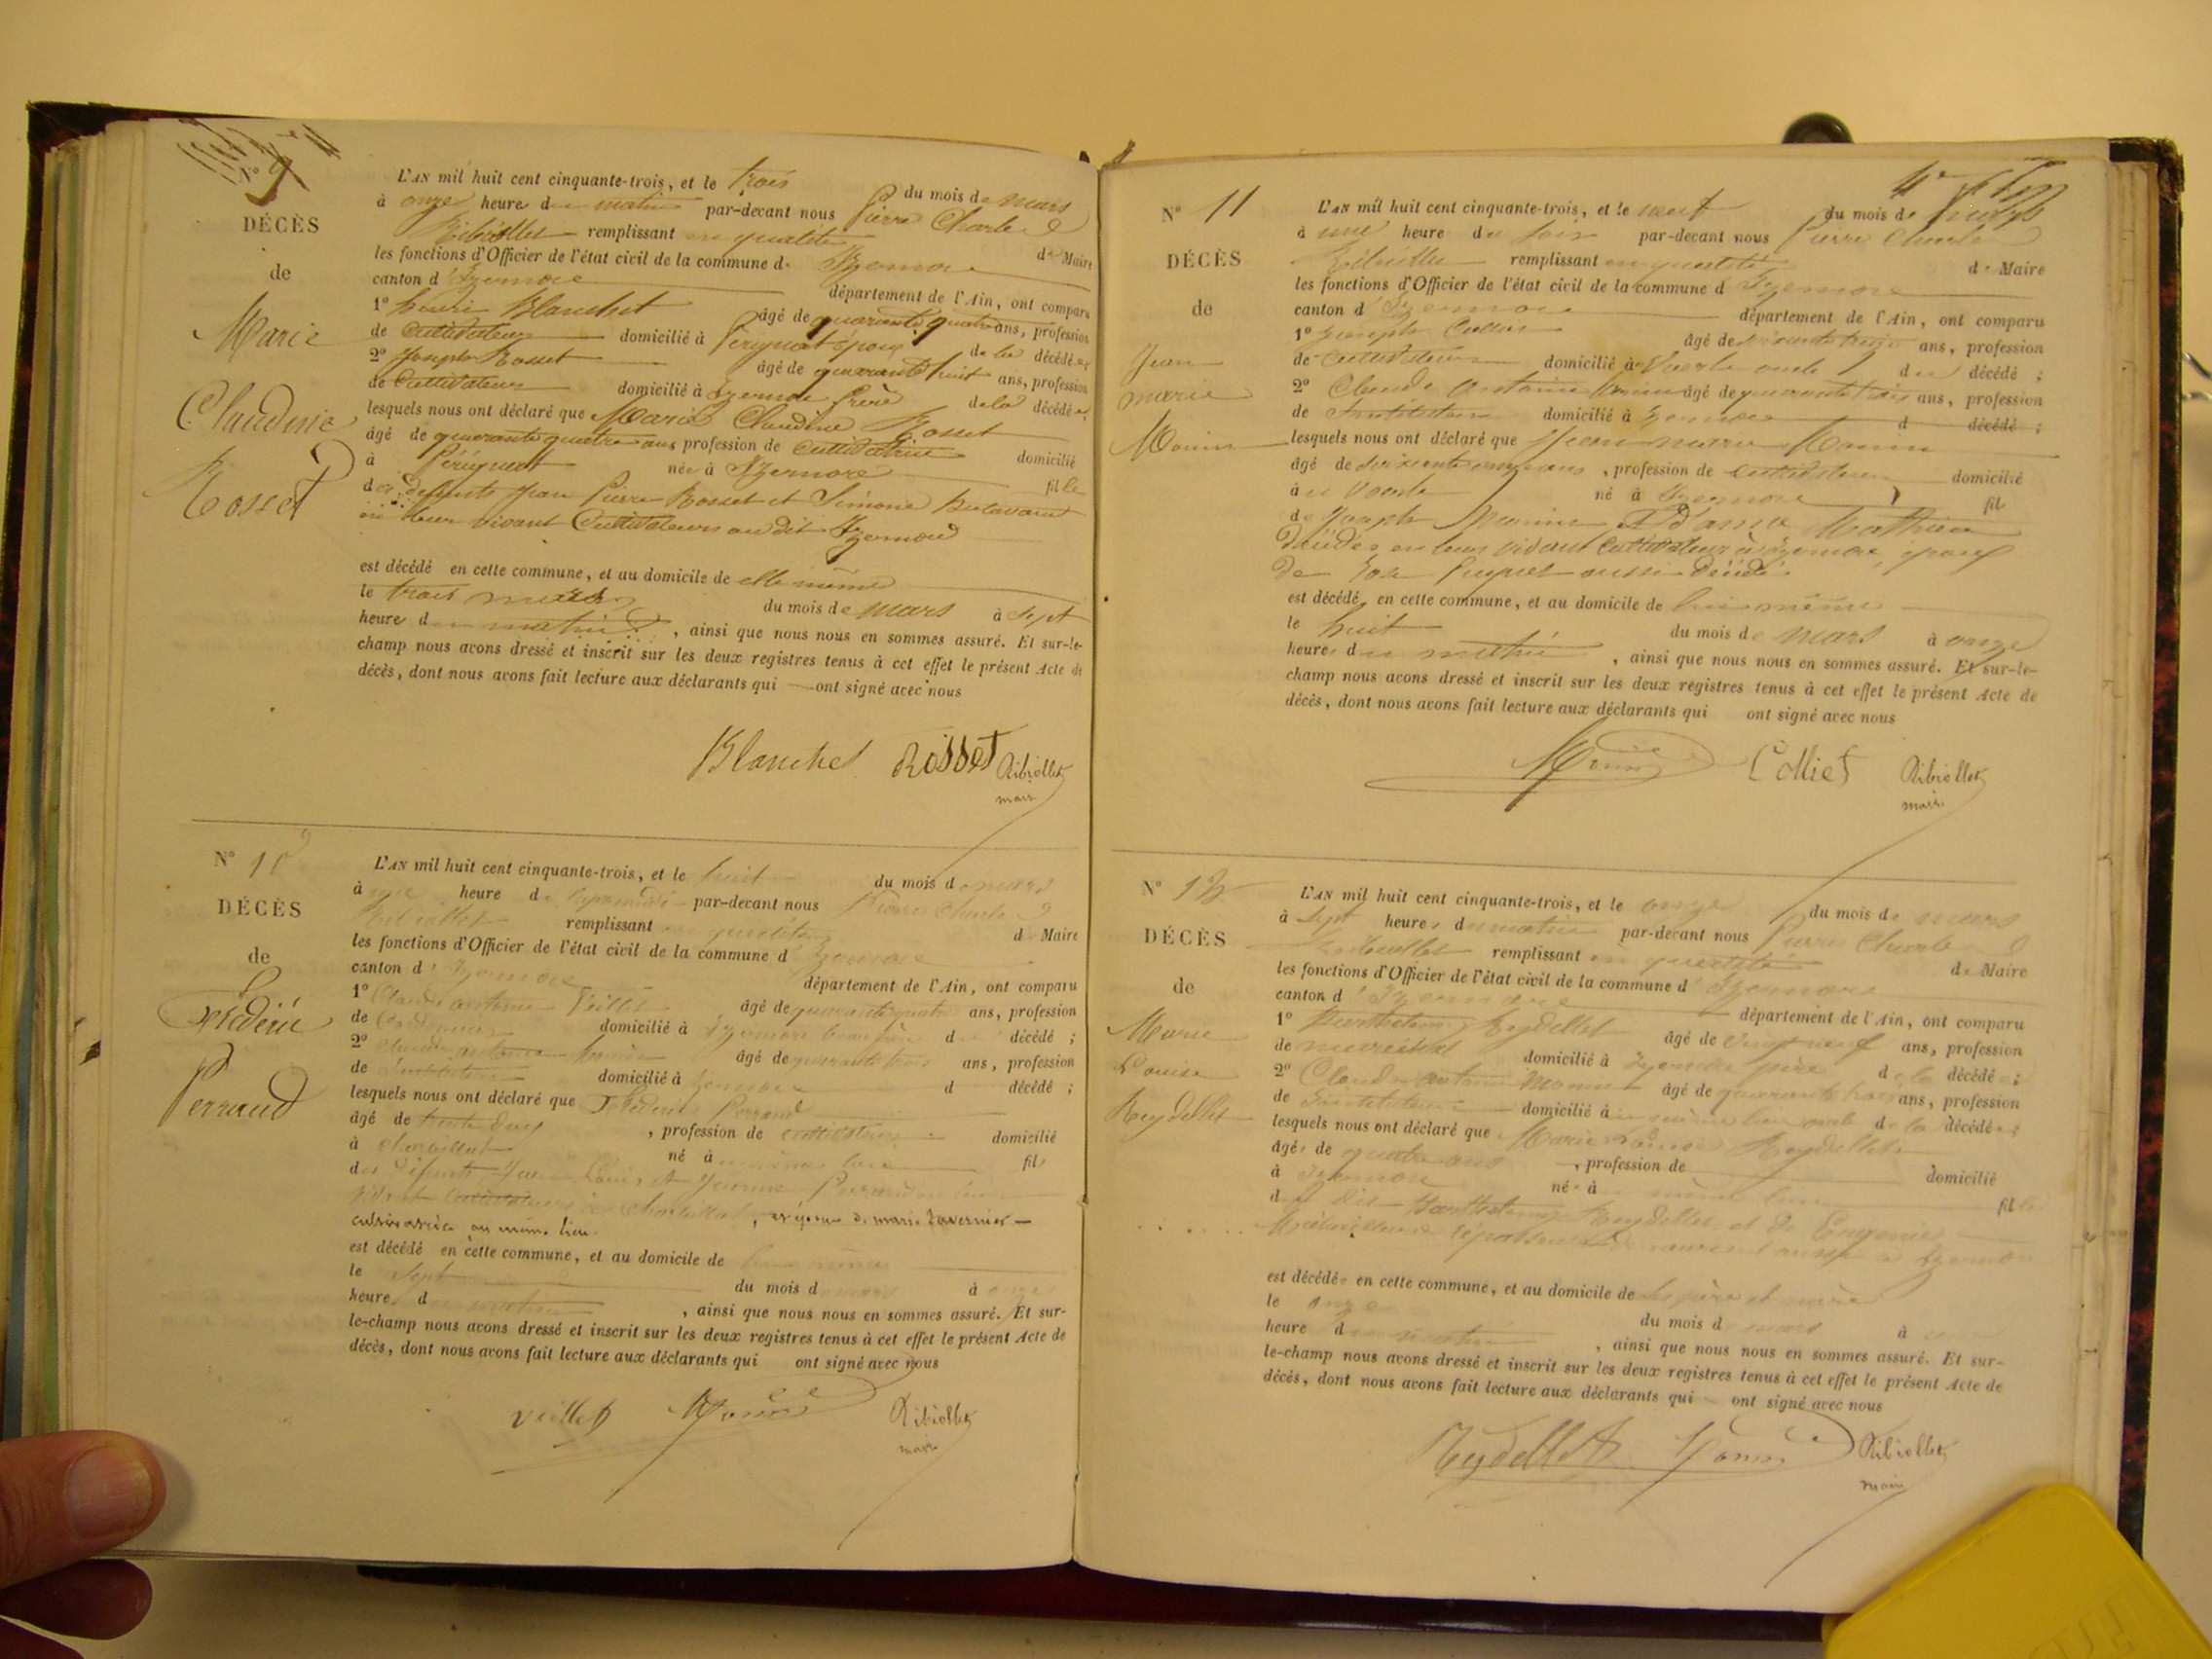 N° 9
DÉCÈS
de
Marie
Claudine
Rosset
L'AN mil huit cent cinquante-trois, et le trois du mois de mars
à onze heure du matin par-devant nous Pierre Charles
Ribiollet remplissant en qualité de Maire
les fonctions d'Officier de l'état civil de la commune d' Izernore
canton d' Izernore département de l'Ain, ont comparu
1° henri Blanchet âgé de quarante quatre ans, profession
de Cultivateur domicilié à Périgniat époux de la décédée;
2° Joseph Rosset âgé de quarante huit ans, profession
de Cultivateur domicilié à Izernore frère de la décédée;
lesquels nous ont déclaré que Marie Claudine Rosset
âgé de quarante quatre ans profession de Cultivatrice domicilié
à Périgniat née à Izernore fille
des défunts Jean Pierre Rosset et Simone
en leur vivant Cultivateurs au dit Izernore
est décédé en cette commune, et au domicile de elle même
le trois mars du mois de mars à sept
heure du matin, ainsi que nous nous en sommes assuré. Et sur-le-
champ nous avons dressé et inscrit sur les deux registres tenus à cet effet le présent Acte de
décès, dont nous avons fait lecture aux déclarants qui ont signé avec nous
Blanchet Rosset Ribiollet
maire
N° 10
DÉCÈS
de
Frédéric
Perraud
L'AN mil huit cent cinquante-trois, et le huit du mois de mars
à une heure de par-devant nous Pierre Charles
Ribiollet remplissant en qualité de Maire
les fonctions d'Officier de l'état civil de la commune d' Izernore
canton d' Izernore département de l'Ain, ont comparu
1° Claude antoine Veillet âgé de quarante quatre ans, profession
de Cordonnier domicilié à Izernore beau frère du décédé;
2° Claude antoine Monin âgé de quarante trois ans, profession
de Instituteur domicilié à Izernore d décédé;
lesquels nous ont déclaré que Frédéric Perraud
âgé de trente deux, profession de cultivateur domicilié
à Charbillat né à même lieu fils
des défunts Jean Louis et Jeanne Perraud en leur
vivant Cultivateurs à Charbillat, et époux de marie Tavernier
cultivatrice au même lieu
est décédé en cette commune, et au domicile de lui même
le sept du mois de mars à onze
heure du matin, ainsi que nous nous en sommes assuré. Et sur-
le-champ nous avons dressé et inscrit sur les deux registres tenus à cet effet le présent Acte de
décès, dont nous avons fait lecture aux déclarants qui ont signé avec nous
Veillet Monin Ribiollet
maire
N° 11
DÉCÈS
de
Jean
marie
Monin
L'AN mil huit cent cinquante-trois, et le neuf du mois de mars
à une heure du soir par-devant nous Pierre Charles
Ribiollet remplissant en qualité de Maire
les fonctions d'Officier de l'état civil de la commune d' Izernore
canton d' Izernore département de l'Ain, ont comparu
1° Joseph Colliet âgé de ans, profession
de Cultivateur domicilié à Voerle oncle du décédé;
2° Claude Antoine Monin âgé de quarante trois ans, profession
de Instituteur domicilié à Izernore d décédé;
lesquels nous ont déclaré que Jean marie Monin
âgé de soixante cinq ans, profession de cultivateur domicilié
à Voerle né à Izernore fils
de Joseph Monin et d'anne Mathieu
décédés en leur vivant Cultivateurs à Izernore, époux
de Rose aussi décédée
est décédé en cette commune, et au domicile de lui même
le huit du mois de mars à onze
heures du matin, ainsi que nous nous en sommes assuré. Et sur-le-
champ nous avons dressé et inscrit sur les deux registres tenus à cet effet le présent Acte de
décès, dont nous avons fait lecture aux déclarants qui ont signé avec nous
Monin Colliet Ribiollet
maire
N° 12
DÉCÈS
de
Marie
Louise
Reydellet
L'AN mil huit cent cinquante-trois, et le onze du mois de mars
à sept heures du matin par-devant nous Pierre Charles
Ribiollet remplissant en qualité de Maire
les fonctions d'Officier de l'état civil de la commune d' Izernore
canton d' Izernore département de l'Ain, ont comparu
1° Barthélemy Reydellet âgé de vingt neuf ans, profession
de maréchal domicilié à Izernore père de la décédée;
2° Claude antoine Monin âgé de quarante trois ans, profession
de Instituteur domicilié à même lieu oncle de la décédée;
lesquels nous ont déclaré que Marie Louise Reydellet
âgée de quatre ans, profession de domicilié
à Izernore née à même lieu fille
du dit Barthélemy Reydellet et de Eugénie
demeurant aussi à Izernore
est décédée en cette commune, et au domicile de ses père et mère
le onze du mois de mars à
heure du matin, ainsi que nous nous en sommes assuré. Et sur-
le-champ nous avons dressé et inscrit sur les deux registres tenus à cet effet le présent Acte de
décès, dont nous avons fait lecture aux déclarants qui ont signé avec nous
Reydellet Monin Ribiollet
maire